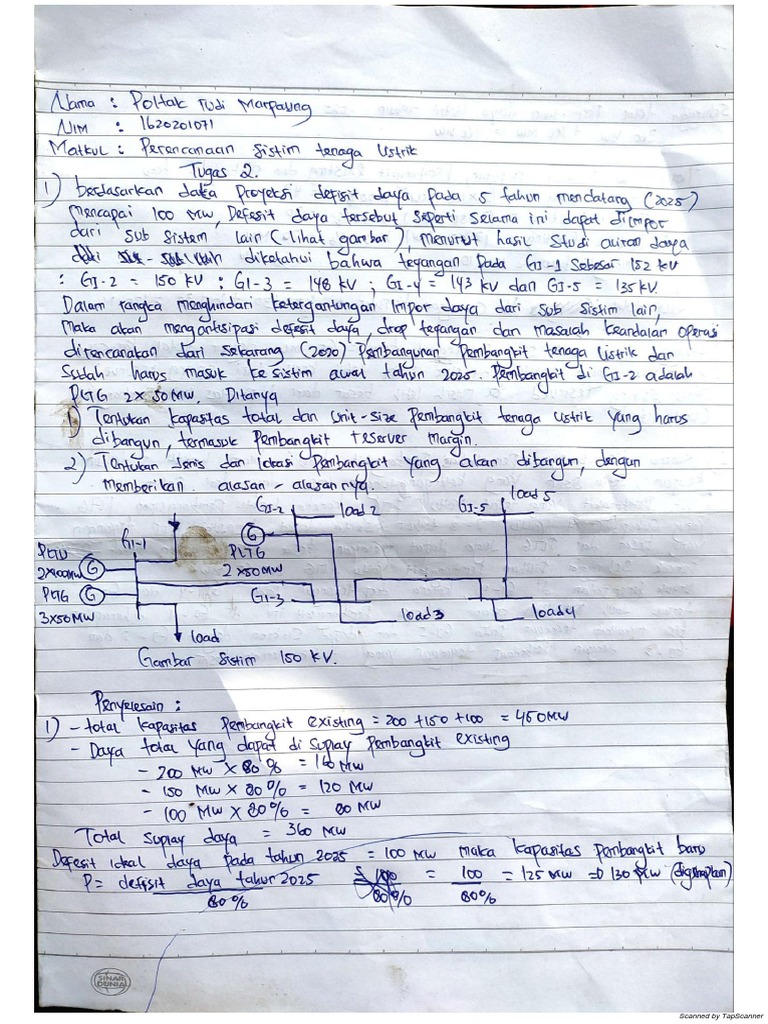 Nama : Poltak Rudi Marpaung
NIM : 1620201071
Matkul : Perencanaan sistim tenaga listrik
Tugas 2.
1) berdasarkan data Proyeksi defisit daya pada 5 tahun mendatang (2025)
mencapai 100 MW, Defesit daya tersebut seperti selama ini dapat diimpor
dari sub sistem lain (-lihat gambar), menurut hasil studi aliran daya
diketahui bahwa tegangan pada GI-1 sebesar 152 kV
: GI-2 = 150 kV : GI-3 = 148 kV ; GI-4 = 143 kV dan GI-5 = 135 kV.
Dalam rangka menghindari ketergantungan Impor daya dari sub sistim lain,
maka akan mengantisipasi defesit daya, drop tegangan dan masalah keandalan operasi
direncanakan dari sekarang (2020) Pembangunan Pembangkit tenaga listrik dan
sudah harus masuk ke sistim awal tahun 2025. Pembangkit di GI-2 adalah
PLTG 2 x 50 MW, Ditanya
1) Tentukan kapasitas total dan Unit-size pembangkit tenaga listrik yang harus
dibangun, termasuk Pembangkit reserver margin.
2) Tentukan Jenis dan lokasi Pembangkit yang akan dibangun, dengan
memberikan alasan-alasannya.
GI-2 load 2 GI-5 load 5
GI-1
PLTU
2x100MW G
G
PLTG
2 x 50 MW
PLTG G
3x50 MW
GI-3
load 3
load 4
load
Gambar sistim 150 KV.
Penyelesain :
1) - total kapasitas pembangkit existing = 200 + 150 + 100 = 450 MW
- Daya total yang dapat di suplay pembangkit existing
- 200 MW x 80 % = 160 MW
- 150 MW x 80 % = 120 MW
- 100 MW x 80 % = 80 MW
Total suplay daya = 360 MW
Defesit ideal daya pada tahun 2025 = 100 MW maka kapasitas pembangkit baru
P = defisit daya tahun 2025 / 80 % = 100 / 80 % = 125 MW => 130 MW (digenapkan)
SINAR
DUNIA
Scanned by TapScanner